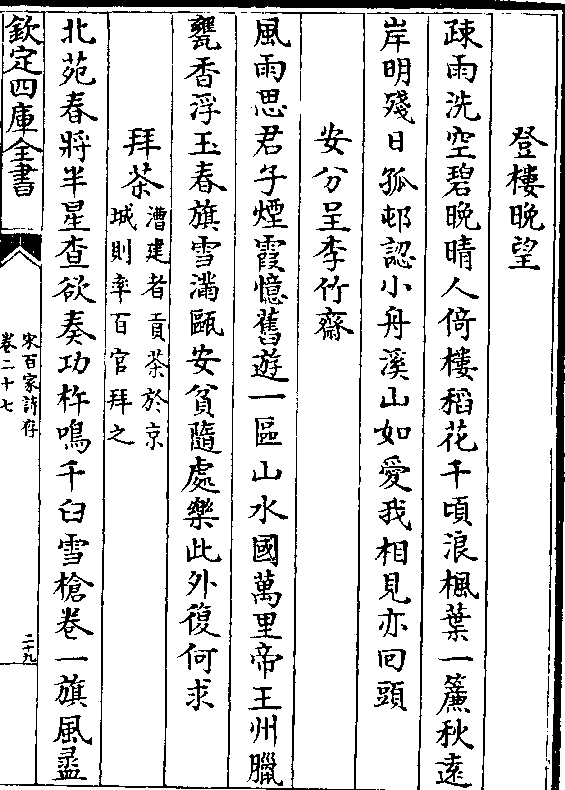 登樓晚望
疎雨洗空碧晚晴人倚樓稻花千頃浪楓葉一簾秋遠
岸明殘日孤邨認小舟溪山如愛我相見亦回頭
安分呈李竹齋
風雨思君子煙霞憶舊遊一區山水國萬里帝王州臘
甕香浮玉春旗雪滿甌安貧隨處樂此外復何求
拜茶漕建者貢茶於京
城則率百官拜之
北苑春將半星查欲奏功杵鳴千臼雪槍卷一旗風盝
欽定四庫全書
宋百家詩存
卷二十七
二十九